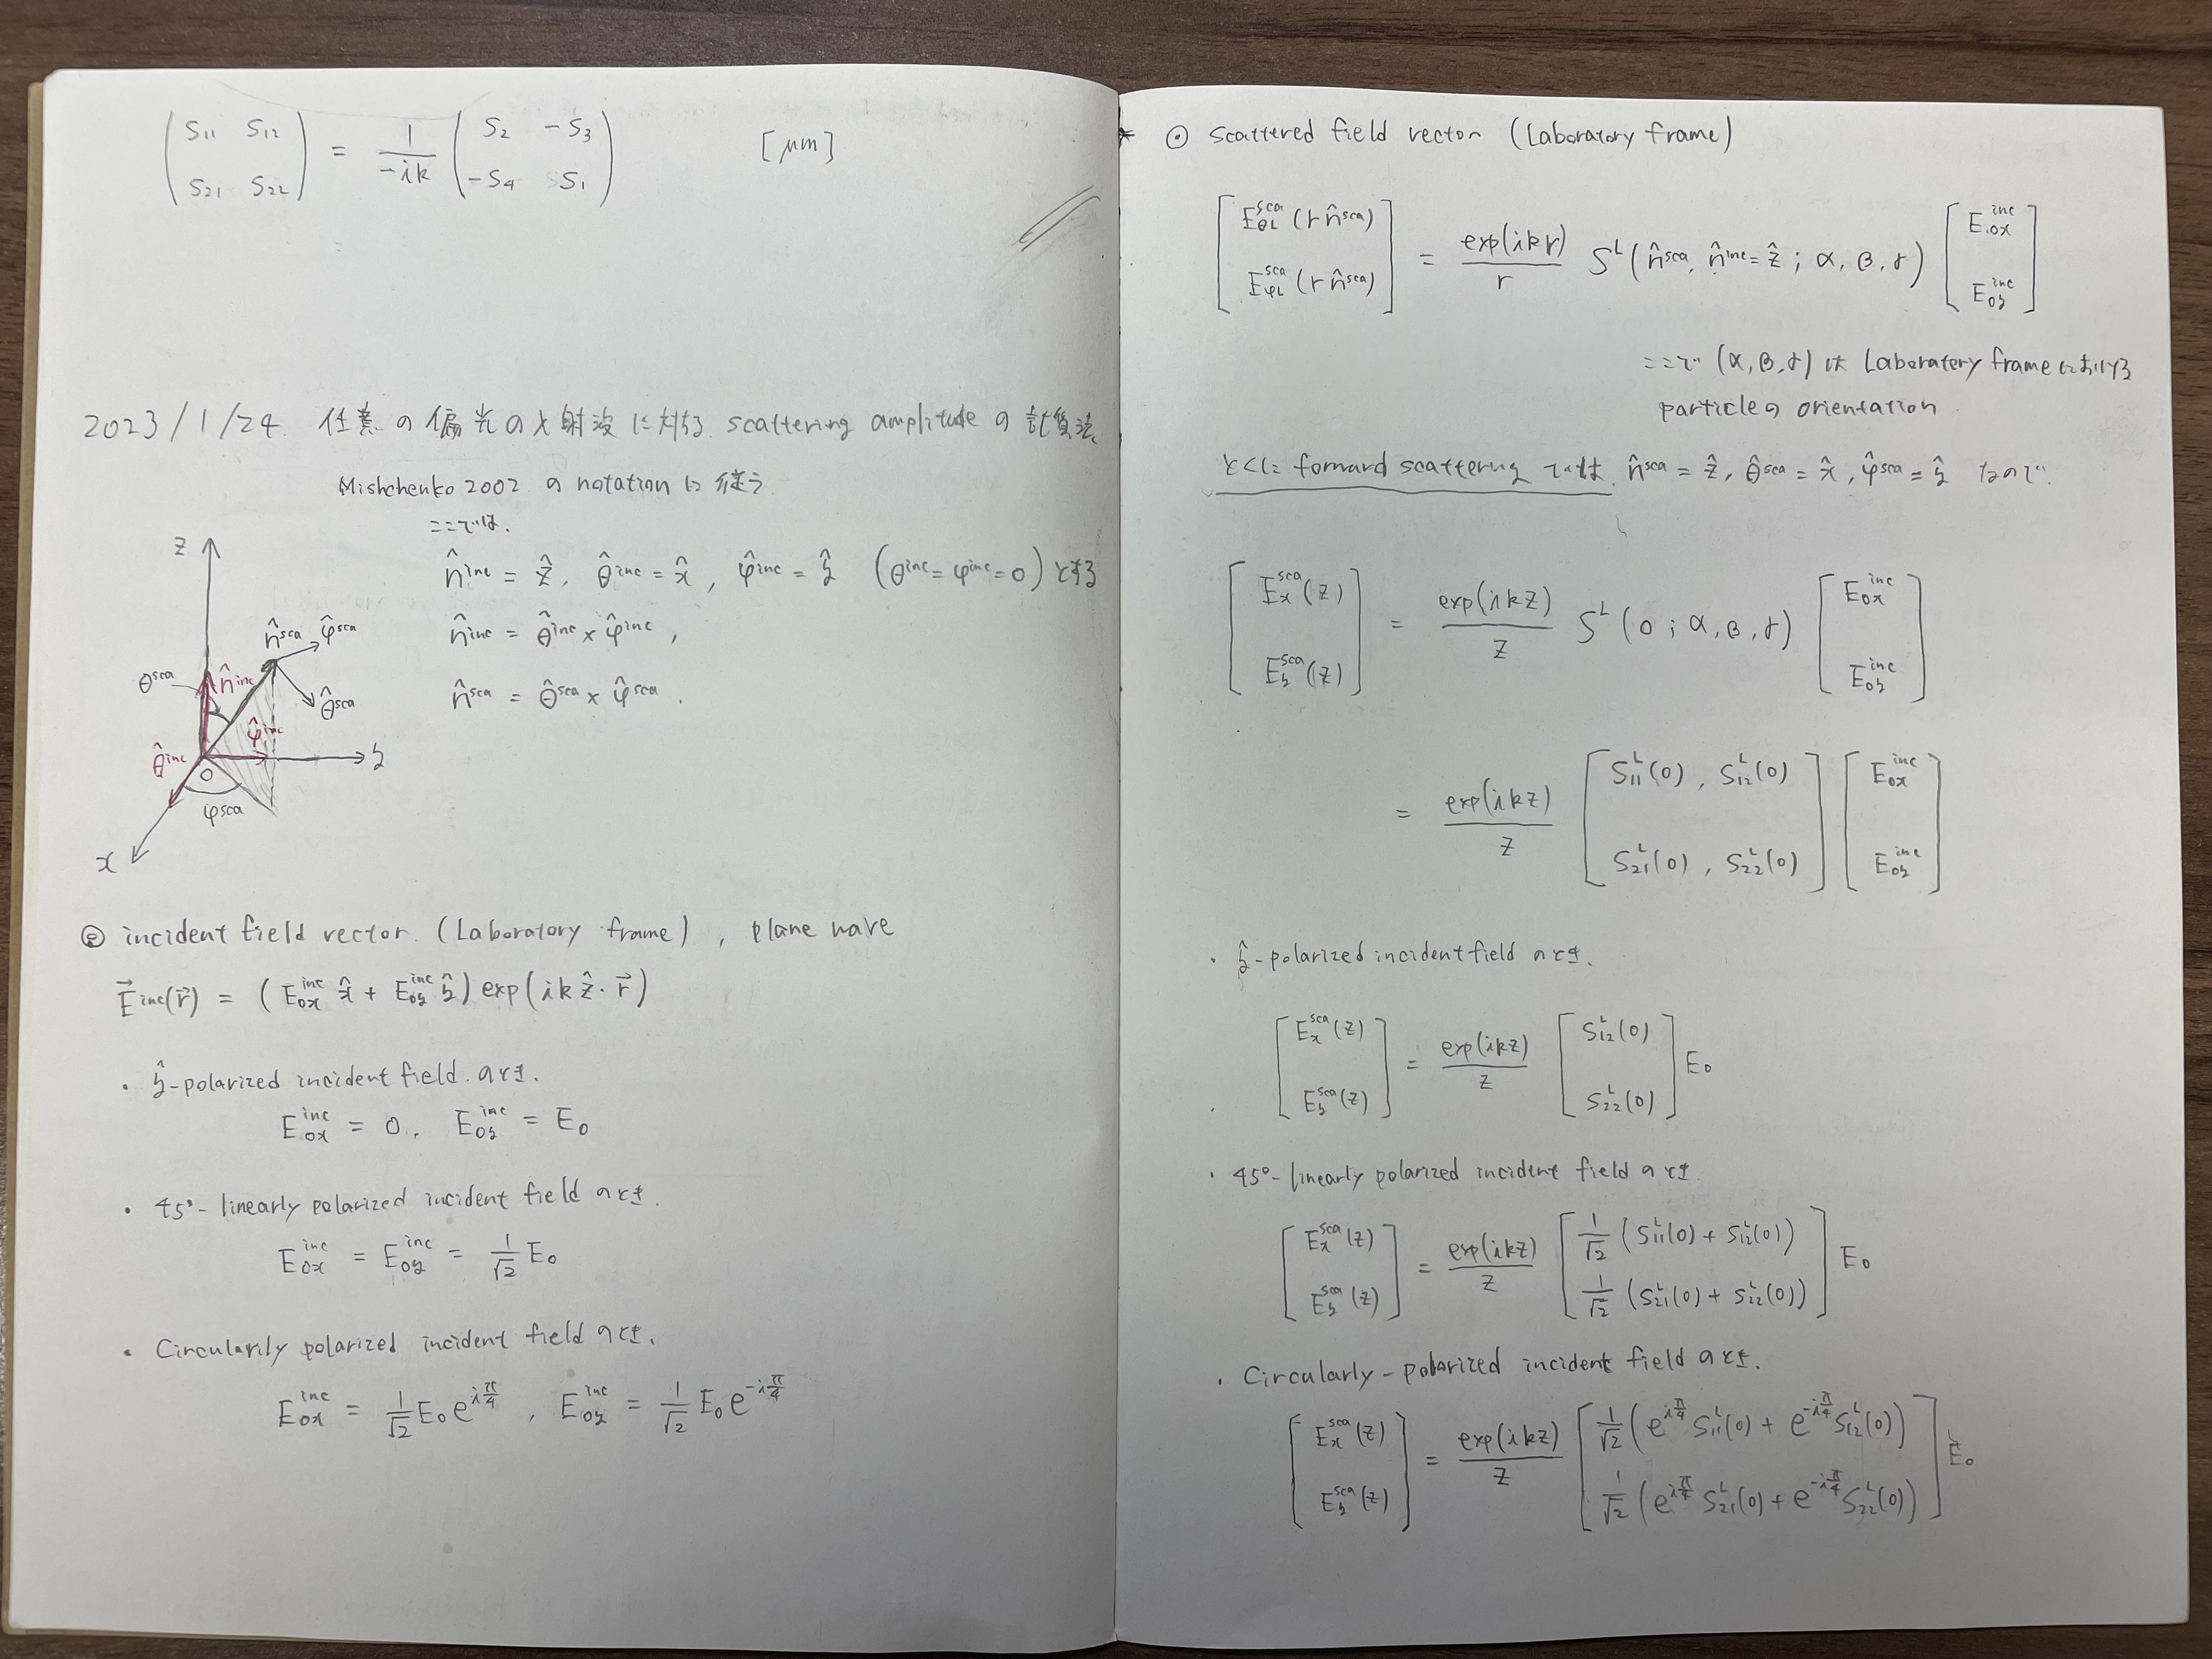 ( S11 S12 ; S21 S22 ) = 1/(-ik) ( S2 -S3 ; -S4 S1 ) [μm]
2023/1/24. 任意の偏光の入射波に対する. scattering amplitude の計算法.
Mishchenko 2002 の notation に従う
ここでは.
n̂^inc = ẑ, θ̂^inc = x̂, φ̂^inc = ŷ (θ^inc = φ^inc = 0) とする
n̂^inc = θ̂^inc × φ̂^inc,
n̂^sca = θ̂^sca × φ̂^sca.
z
n̂^sca
φ̂^sca
θ^sca
n̂^inc
θ̂^sca
φ̂^inc
y
θ̂^inc
O
φ^sca
x
⊙ incident field vector. (Laboratory frame), plane wave
E⃗^inc(r⃗) = (E0x^inc x̂ + E0y^inc ŷ) exp(ik ẑ·r⃗)
・ŷ-polarized incident field. のとき.
E0x^inc = 0, E0y^inc = E0
・45°-linearly polarized incident field のとき.
E0x^inc = E0y^inc = 1/√2 E0
・Circularily polarized incident field のとき.
E0x^inc = 1/√2 E0 e^{iπ/4}, E0y^inc = 1/√2 E0 e^{-iπ/4}
* ⊙ scattered field vector (Laboratory frame)
[ EθL^sca (r n̂^sca) ; EφL^sca (r n̂^sca) ] = exp(ikr)/r S^L (n̂^sca, n̂^inc = ẑ ; α, β, γ) [ E0x^inc ; E0y^inc ]
ここで (α, β, γ) は Laboratery frame における
particleの orientation
とくに forward scattering では, n̂^sca = ẑ, θ̂^sca = x̂, φ̂^sca = ŷ なので.
[ Ex^sca (z) ; Ey^sca (z) ] = exp(ikz)/z S^L (0 ; α, β, γ) [ E0x^inc ; E0y^inc ]
= exp(ikz)/z [ S11^L(0), S12^L(0) ; S21^L(0), S22^L(0) ] [ E0x^inc ; E0y^inc ]
・ŷ-polarized incident field のとき.
[ Ex^sca (z) ; Ey^sca (z) ] = exp(ikz)/z [ S12^L(0) ; S22^L(0) ] E0
・45°-linearly polarized incident field のとき
[ Ex^sca (z) ; Ey^sca (z) ] = exp(ikz)/z [ 1/√2 (S11^L(0) + S12^L(0)) ; 1/√2 (S21^L(0) + S22^L(0)) ] E0
・Circularly-polarized incident field のとき.
[ Ex^sca (z) ; Ey^sca (z) ] = exp(ikz)/z [ 1/√2 (e^{iπ/4} S11^L(0) + e^{-iπ/4} S12^L(0)) ; 1/√2 (e^{iπ/4} S21^L(0) + e^{-iπ/4} S22^L(0)) ] E0